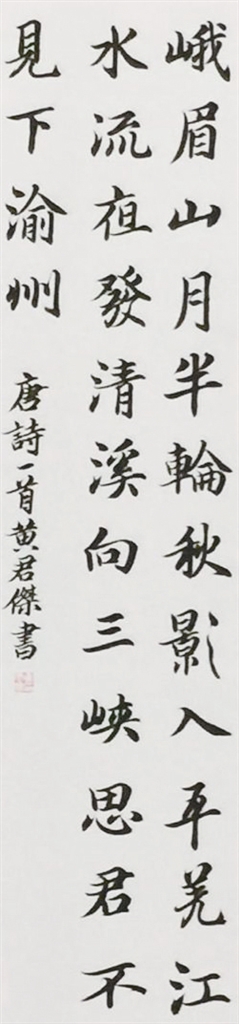 峨眉山月半輪秋影入平羌江
水流夜發清溪向三峽思君不
見下渝州
唐詩一首黄君傑書